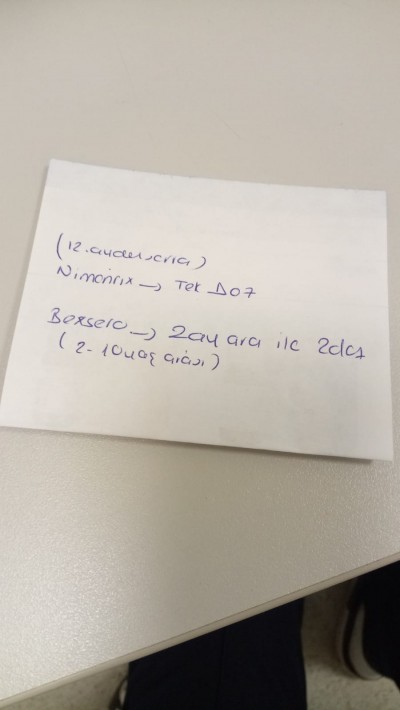 (12.aydan sonra)
Nimenrix → Tek Doz
Bexsero → 2ay ara ile 2doz
(2-10yaş arası)